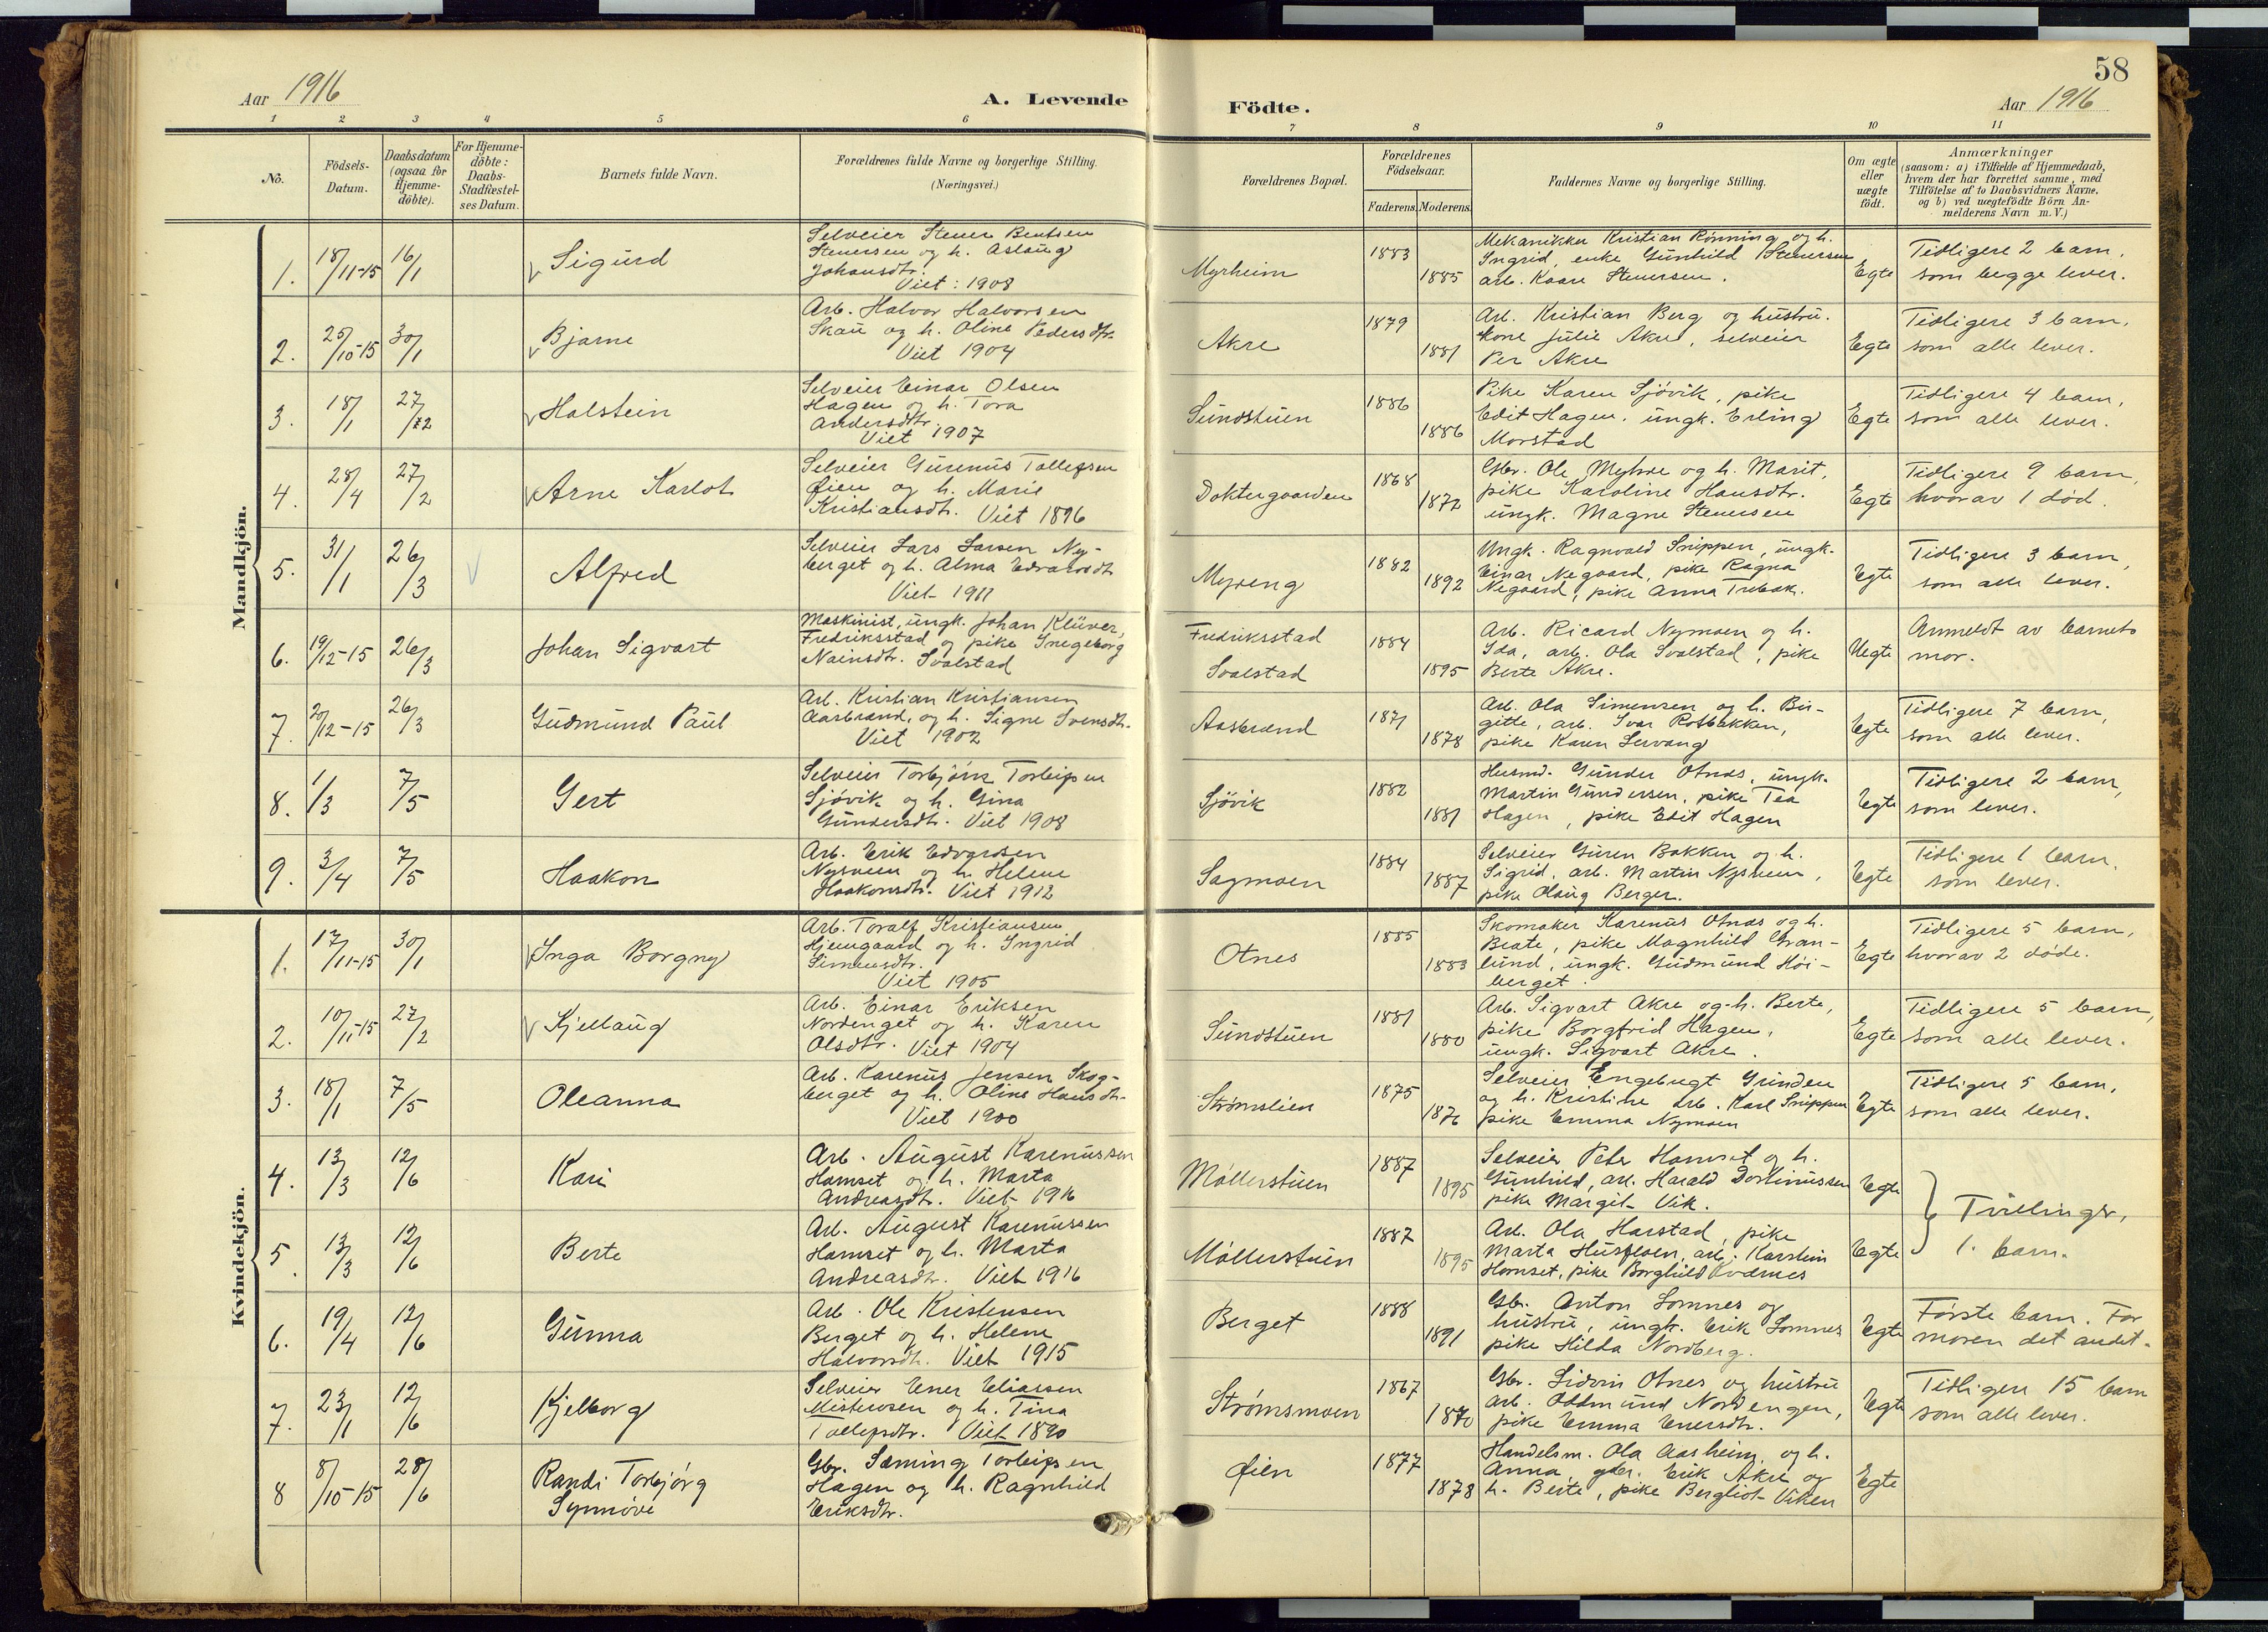 58
Aar 1916
A. Levende
Födte.
Aar 1916
1 2 3 4 5 6 7 8 9 10 11
No.
Födsels-
Datum.
Daabsdatum
(ogsaa for
Hjemme-
döbte).
For Hjemme-
döbte:
Daabs-
Stadfæstel-
ses Datum.
Barnets fulde Navn.
Forældrenes fulde Navne og borgerlige Stilling.
(Næringsvei.)
Forældrenes Bopæl.
Forældrenes
Födselsaar.
Faderens. Moderens.
Faddernes Navne og borgerlige Stilling.
Om ægte
eller
uægte
födt.
Anmærkninger
(saasom: a) i Tilfælde af Hjemmedaab,
hvem der har forrettet samme, med
Tilföielse af to Daabsvidners Navne,
og b) ved uægtefödte Börn An-
melderens Navn m. V.)
Mandkjön.
1. 18/11-15 16/1 Sigurd
Selveier Steuer Bentsen
Stenersen og h. Aslaug
Johansdtr.
Viet: 1908
Myrheim
1883
1885
Mekanikker Kristian Rönning og h.
Ingrid, enke Gunhild Stenersen
arb. Kaare Stenersen.
Egte
Tidligere 2 barn,
som begge lever.
2. 25/10-15 30/1 Bjarne
Arb. Halvor Halvorsen
Skau og h. Oline Pedersdtr.
Viet 1904
Akre
1879
1881
Arb. Kristian Berg og hustru.
Kone Julie Akre, selveier
Per Akre
Egte
Tidligere 3 barn,
som alle lever.
3. 18/1 27/2 Halstein
Selveier Einar Olsen
Hagen og h. Tora
Andersdtr.
Viet 1907
Sundstuen
1886
1886
Pike Karen Sjövik, pike
Edit Hagen, ungk. Erling
Morstad
Egte
Tidligere 4 barn,
som alle lever.
4. 28/4 27/2 Arne Karlot
Selveier Gurenus Tollefsen
Øien og h. Marie
Kristiansdtr. Viet 1896
Doktergaarden
1868
1872
Gbr. Ole Myhre og h. Marit,
pike Karoline Hansdtr.
ungk. Magne Stenersen
Egte
Tidligere 9 barn,
hvorav 1 död.
5. 31/1 26/3 Alfred
Selveier Lars Larsen Ny-
berget og h. Alma Edvardsdtr
Viet 1911
Myreng
1882
1892
Ungk. Ragnvald Snippen, ungk.
Einar Negaard, pike Ragna
Negaard, pike Anna Trebak.
Egte
Tidligere 3 barn,
som alle lever.
6. 19/12-15 26/3 Johan Sigvart
Maskinist, ungk. Johan Klüver,
Fredriksstad og pike Ingeborg
Nainsdtr. Svalstad
Fredriksstad
Svalstad
1884
1895
Arb. Ricard Nymoen og h.
Ida, arb. Ola Svalstad, pike
Berte Akre.
Uegte
Anmeldt av barnets
mor.
7. 20/12-15 26/3 Gudmund Paul
Arb. Kristian Kristiansen
Aasbrand, og h. Signe Svensdtr.
Viet 1902
Aasbrand
1871
1878
Arb. Ola Simensen og h. Bir-
gitte, arb. Ivar Rotbakken,
pike Karen Lervang
Egte
Tidligere 7 barn,
som alle lever.
8. 1/3 7/5 Gert
Selveier Torbjörn Torleifsen
Sjövik og h. Gina
Gundersdtr. Viet 1908
Sjövik
1882
1881
Husmd. Gunder Otnæs, ungk.
Martin Gundersen, pike Tea
Hagen, pike Edit Hagen
Egte
Tidligere 2 barn,
som lever.
9. 3/4 7/5 Haakon
Arb. Erik Edvardsen
Nysveen og h. Helene
Haakonsdtr. Viet 1912
Sagmoen
1884
1887
Selveier Guren Bakken og h.
Sigrid, arb. Martin Nysveen,
pike Olaug Berger.
Egte
Tidligere 1 barn,
som lever.
Kvindekjön.
1. 17/11-15 30/1 Inga Borgny
Arb. Toralf Kristiansen
Hjemgaard og h. Ingrid
Simensdtr.
Viet 1905
Otnes
1885
1883
Skomaker Karenus Otnæs og h.
Beate, pike Magnhild Gran-
lund, ungk. Gudmund Höi-
berget.
Egte
Tidligere 5 barn,
hvorav 2 döde.
2. 10/11-15 27/2 Kjellaug
Arb. Einar Eriksen
Nordenget og h. Karen
Olsdtr. Viet 1904
Sundstuen
1881
1880
Arb. Sigvart Akre og h. Berte,
pike Borgfrid Hagen,
ungk. Sigvart Akre.
Egte
Tidligere 5 barn,
som alle lever.
3. 18/1 7/5 Oleanna
Arb. Karenus Jensen Skog-
berget og h. Oline Hansdtr.
Viet 1900
Strömslien
1875
1876
Selveier Engebregt Grinden
og h. Kristine Arb. Karl Snippen
pike Emma Nymoen
Egte
Tidligere 5 barn,
som alle lever.
4. 13/3 12/6 Kari
Arb. August Karenussen
Hamset og h. Marta
Andreasdtr. Viet 1916
Möllerstuen
1887
1895
Selveier Peter Homset og h.
Gunhild, arb. Harald Dortinussen
pike Margit Vik.
Egte
Tvillinger,
1. barn.
5. 13/3 12/6 Berte
Arb. August Karenussen
Hamset og h. Marta
Andreasdtr. Viet 1916
Möllerstuen
1887
1895
Arb. Ola Harstad, pike
Marta Husfloen, arb. Karstein
Homset, pike Borghild Kværnes
Egte
6. 19/4 12/6 Gunna
Arb. Ole Kristensen
Berget og h. Helene
Halvorsdtr. Viet 1915
Berget
1888
1891
Gbr. Anton Lomnes og
hustru, ungk. Erik Lomnes
pike Hilda Nordberg.
Egte
Förste barn. For
moren det andet.
7. 23/1 12/6 Kjelborg
Selveier Ener Eliassen
Misterosen og h. Tina
Tollefsdtr. Viet 1890
Strømsmoen
1867
1870
Gbr. Sidvin Otnes og hustru
arb. Oddmund Nordengen,
pike Emma Enersdtr.
Egte
Tidligere 15 barn
som alle lever.
8 8/10-15 28/6 Randi Torbjörg
Synnöve
Gbr. Sæming Torleifsen
Hagen og h. Ragnhild
Eriksdtr.
Øien
1877
1878
Handelsm. Ola Aasheim, og h.
Anna, gbr. Erik Akre og
h. Berte, pike Bergliot Viken
Egte